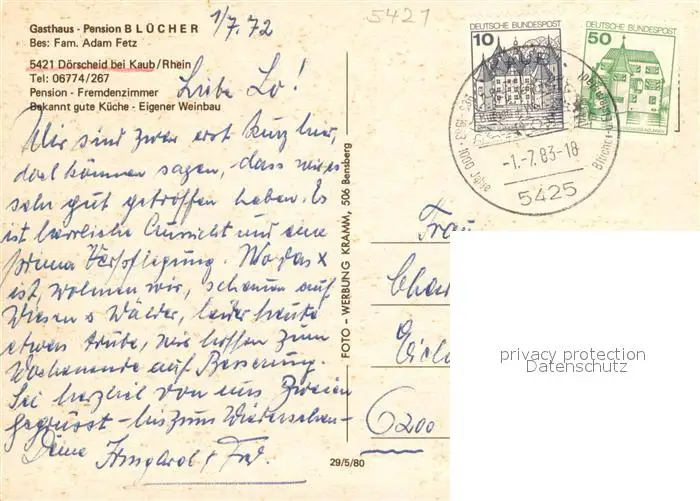 Gasthaus - Pension BLÜCHER
Bes: Fam. Adam Fetz
5421 Dörscheid bei Kaub/Rhein
Tel: 06774/267
Pension - Fremdenzimmer
Bekannt gute Küche - Eigener Weinbau
1/7.72
5421
Liebe Lo!
Wir sind zwar erst kurz hier,
doch können sagen, dass wir es
sehr gut getroffen haben. Es
ist herrliche Aussicht und eine
prima Verpflegung. Wo das x
ist, wohnen wir, schauen auf
Wiesen u Wälder, leider heute
etwas trübe, wir hoffen zum
Wochenende auf Besserung.
Sei herzlich von uns Zweien
gegrüsst - bis zum Wiedersehen -
Deine Irmgard +
FOTO - WERBUNG KRAMM, 506 Bensberg
29/5/80
DEUTSCHE BUNDESPOST
10
DEUTSCHE BUNDESPOST
50
KAUB
983 - 1000 Jahre
Blücher
-1.-7.83-18
5425
Frau
6200
privacy protection
Datenschutz